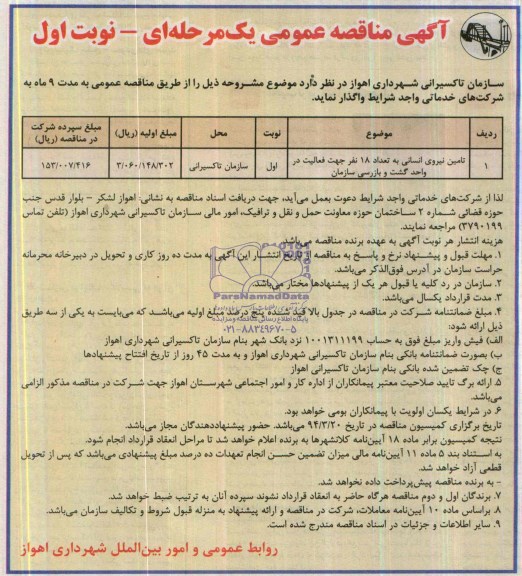 آگهی مناقصه عمومی یک‌مرحله‌ای – نوبت اول
سازمان تاکسیرانی شهرداری اهواز در نظر دارد موضوع مشروحه ذیل را از طریق مناقصه عمومی به مدت ۹ ماه به
شرکت‌های خدماتی واجد شرایط واگذار نماید.
ردیف موضوع نوبت محل مبلغ اولیه (ریال) مبلغ سپرده شرکت در مناقصه (ریال)
۱ تامین نیروی انسانی به تعداد ۱۸ نفر جهت فعالیت در واحد گشت و بازرسی سازمان اول سازمان تاکسیرانی ۳/۰۶۰/۱۴۸/۳۰۲ ۱۵۳/۰۰۷/۴۱۶
لذا از شرکت‌های خدماتی واجد شرایط دعوت بعمل می‌آید، جهت دریافت اسناد مناقصه به نشانی: اهواز لشکر – بلوار قدس جنب
حوزه قضائی شماره ۲ ساختمان حوزه معاونت حمل و نقل و ترافیک، امور مالی سازمان تاکسیرانی شهرداری اهواز (تلفن تماس
۳۷۹۰۱۹۹) مراجعه نمایند.
هزینه انتشار هر نوبت آگهی به عهده برنده مناقصه می‌باشد
۱. مهلت قبول و پیشنهاد نرخ و پاسخ به مناقصه از تاریخ انتشار این آگهی به مدت ده روز کاری و تحویل در دبیرخانه محرمانه
حراست سازمان در آدرس فوق‌الذکر می‌باشد.
۲. سازمان در رد کلیه یا قبول هر یک از پیشنهادها مختار می‌باشد.
۳. مدت قرارداد یکسال می‌باشد.
۴. مبلغ ضمانتنامه شرکت در مناقصه در جدول بالا قید شده پنج درصد مبلغ اولیه می‌باشد که می‌بایست به یکی از سه طریق
ذیل ارائه شود:
الف) فیش واریز مبلغ فوق به حساب ۱۰۰۱۳۱۱۱۹۹ نزد بانک شهر بنام سازمان تاکسیرانی شهرداری اهواز
ب) بصورت ضمانتنامه بانکی بنام سازمان تاکسیرانی شهرداری اهواز و به مدت ۴۵ روز از تاریخ افتتاح پیشنهادها
ج) چک تضمین شده بانکی بنام سازمان تاکسیرانی اهواز
۵. ارائه برگ تایید صلاحیت معتبر پیمانکاران از اداره کار و امور اجتماعی شهرستان اهواز جهت شرکت در مناقصه مذکور الزامی
می‌باشد.
۶. در شرایط یکسان اولویت با پیمانکاران بومی خواهد بود.
تاریخ برگزاری کمیسیون مناقصه در تاریخ ۹۴/۳/۲۰ می‌باشد. حضور پیشنهاددهندگان مجاز می‌باشد.
نتیجه کمیسیون برابر ماده ۱۸ آیین‌نامه کلانشهرها به برنده اعلام خواهد شد تا مراحل انعقاد قرارداد انجام شود.
به استناد بند ۵ ماده ۱۱ آیین‌نامه مالی میزان تضمین حسن انجام تعهدات ده درصد مبلغ پیشنهادی می‌باشد که پس از تحویل
قطعی آزاد خواهد شد.
- به برنده مناقصه پیش‌پرداخت داده نخواهد شد.
۷. برندگان اول و دوم مناقصه هرگاه حاضر به انعقاد قرارداد نشوند سپرده آنان به ترتیب ضبط خواهد شد.
۸. براساس ماده ۱۰ آیین‌نامه معاملات، شرکت در مناقصه و ارائه پیشنهاد به منزله قبول شروط و تکالیف سازمان می‌باشد.
۹. سایر اطلاعات و جزئیات در اسناد مناقصه مندرج شده است.
روابط عمومی و امور بین‌الملل شهرداری اهواز
ParsNamadData
پایگاه اطلاع رسانی مناقصه و مزایده
۰۲۱-۸۸۳۴۹۶۷۰-۵